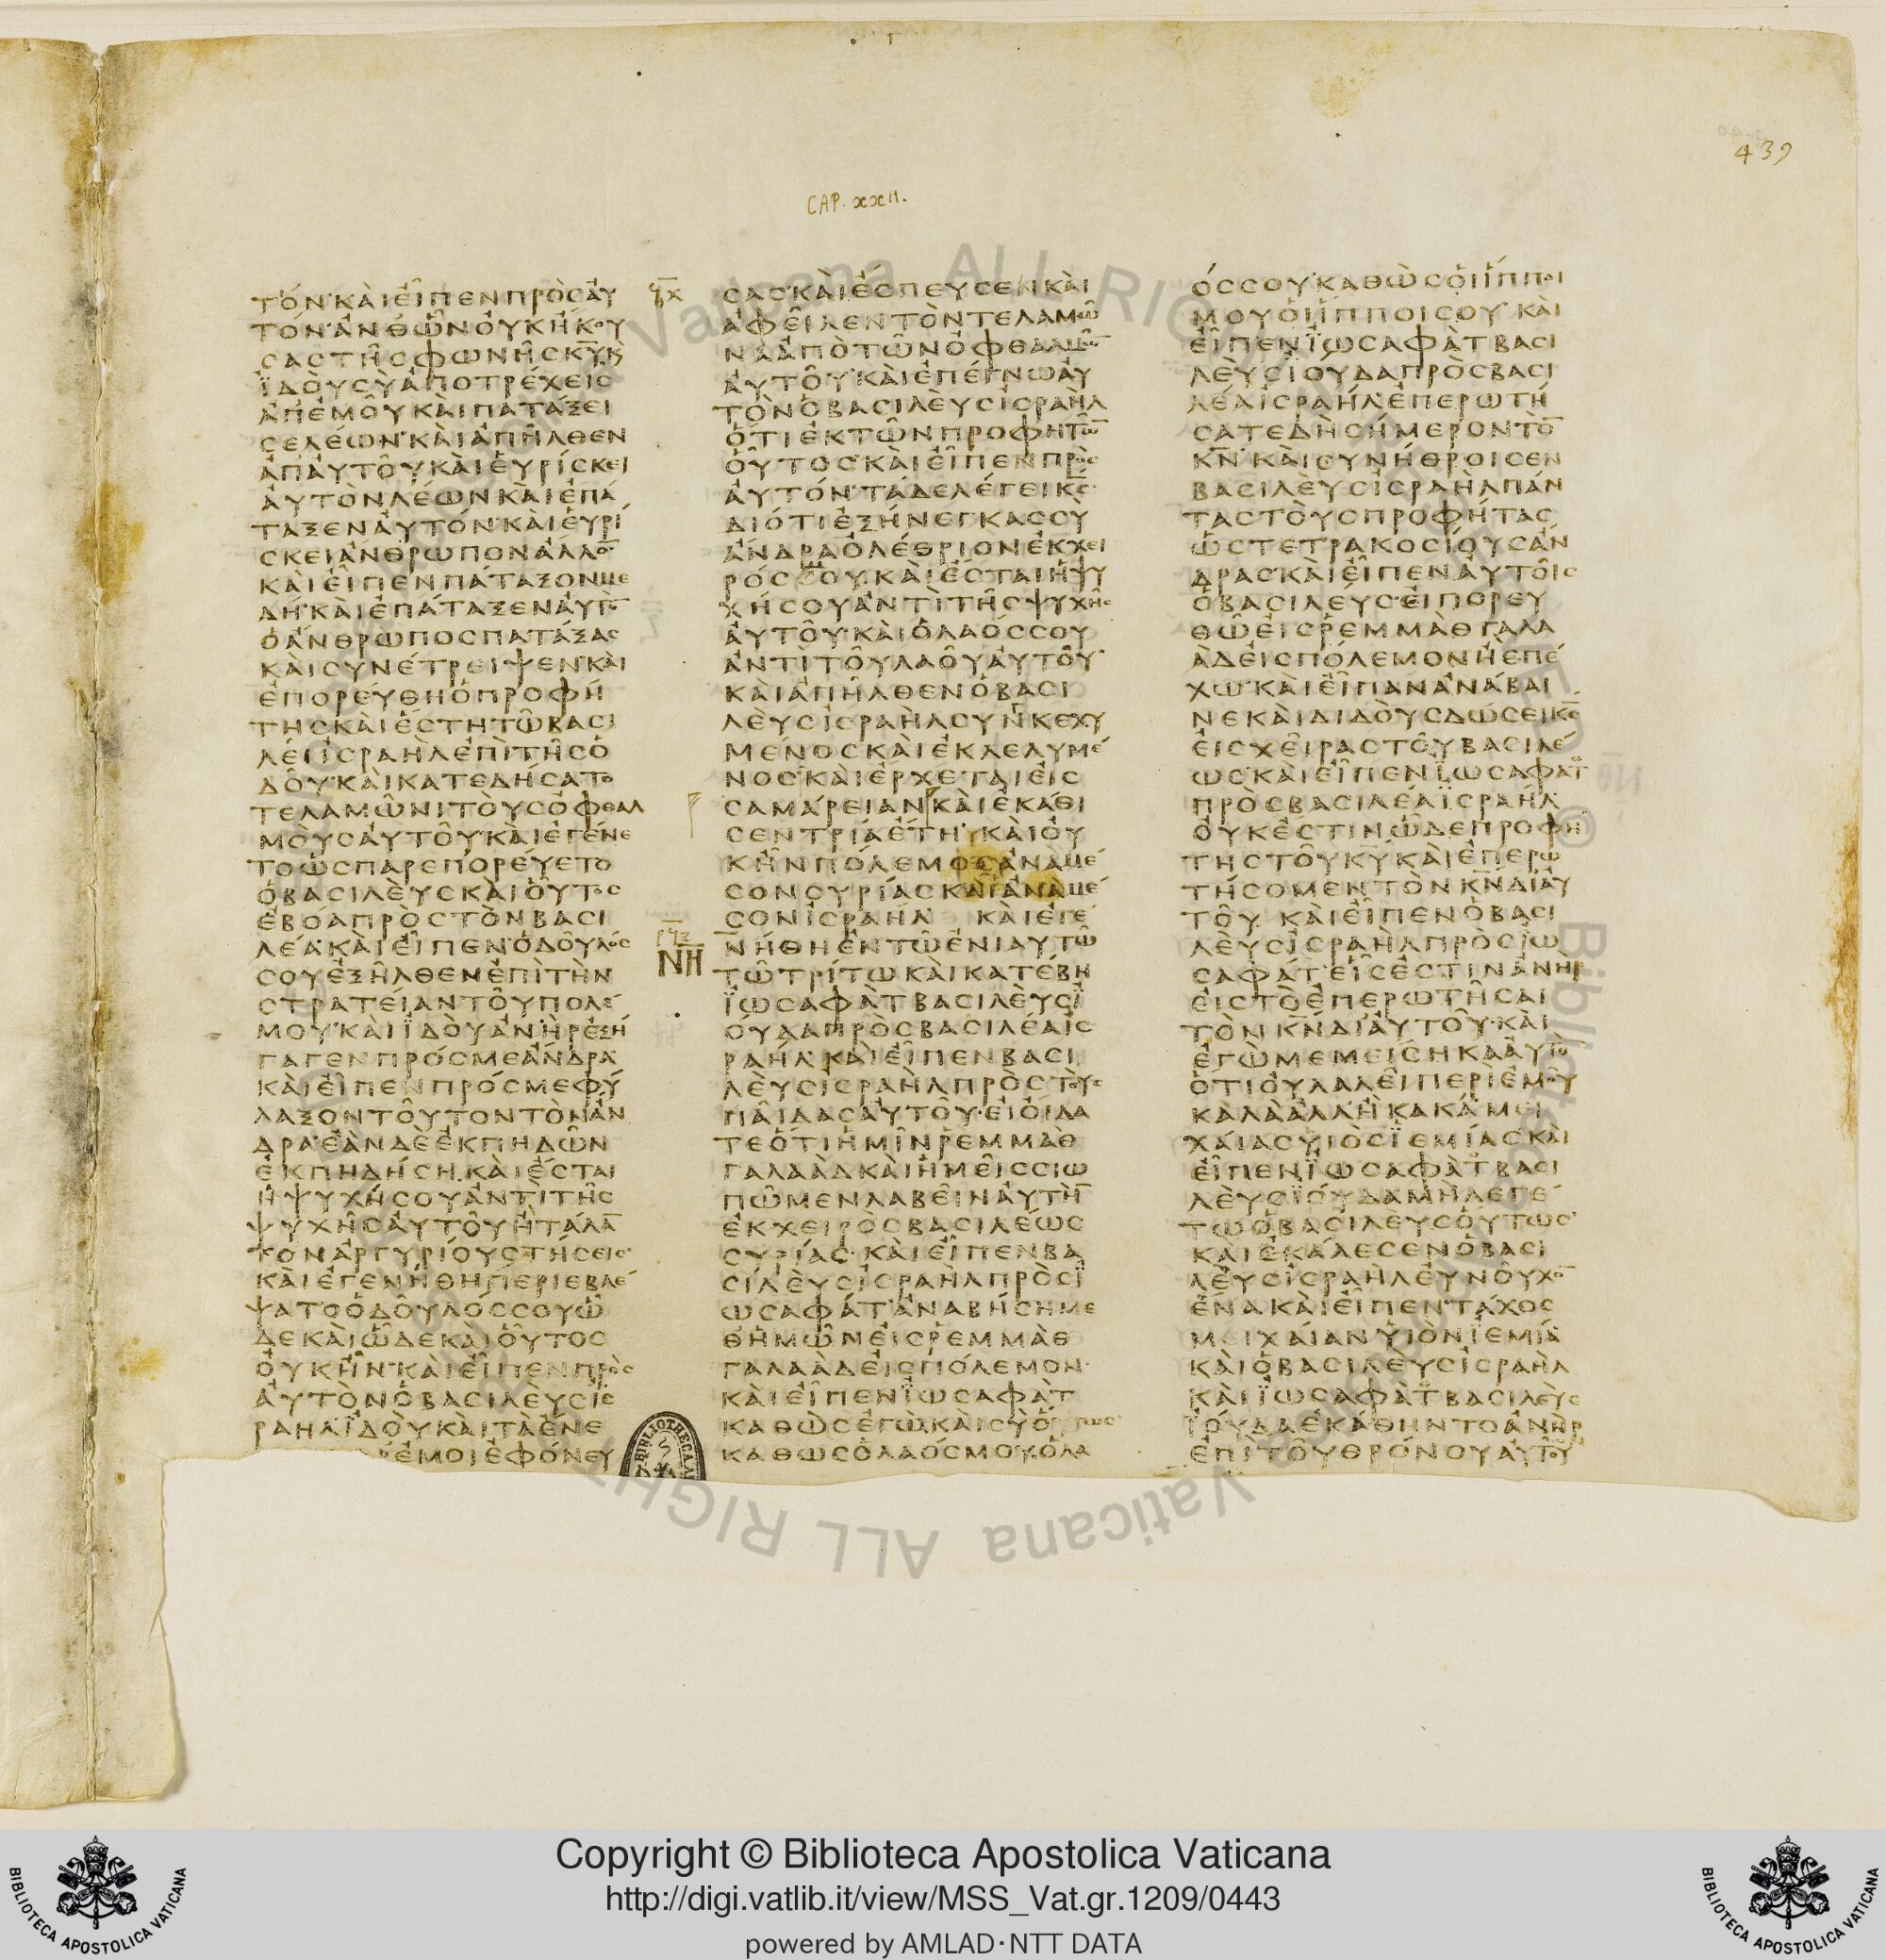 439
CAP. xxII.
ΤΌΝ ΚΑῚ ΕἾΠΕΝ ΠΡῸϹ ΑΥ
ΤΟΝ ἈΝΘ ὮΝ ΟΥΚ ΗΚΟΥ
ϹΑϹ ΤΗϹ ΦΩΝΗϹ ΚΥ Κ
ΪΔΟΥ ϹΥ ΑΠΟΤΡΕΧΕΙϹ
ΑΠ ΕΜΟΥ ΚΑΙ ΠΑΤΑΞΕΙ
ϹΕ ΛΕΩΝ ΚΑΙ ΑΠΗΛΘΕΝ
ΑΠ ΑΥΤΟΥ ΚΑΙ ΕΥΡΙϹΚΕΙ
ΑΥΤΟΝ ΛΕΩΝ ΚΑΙ ΕΠΑ
ΤΑΞΕΝ ΑΥΤΟΝ ΚΑΙ ΕΥΡΙ
ϹΚΕΙ ΑΝΘΡΩΠΟΝ ΑΛΛΟ̅
ΚΑΙ ΕΙΠΕΝ ΠΑΤΑΞΟΝ ΜΕ
ΔΗ ΚΑΙ ΕΠΑΤΑΞΕΝ ΑΥΤΟ̅
Ο ΑΝΘΡΩΠΟϹ ΠΑΤΑΞΑϹ
ΚΑΙ ϹΥΝΕΤΡΕΙΨΕΝ ΚΑΙ
ΕΠΟΡΕΥΘΗ Ο ΠΡΟΦΗ
ΤΗϹ ΚΑΙ ΕϹΤΗ ΤΩ ΒΑϹΙ
ΛΕΙ ΙϹΡΑΗΛ ΕΠΙ ΤΗϹ Ο
ΔΟΥ ΚΑΙ ΚΑΤΕΔΗϹΑΤΟ
ΤΕΛΑΜΩΝΙ ΤΟΥϹ ΟΦΘΑΛ
ΜΟΥϹ ΑΥΤΟΥ ΚΑΙ ΕΓΕΝΕ
ΤΟ ΩϹ ΠΑΡΕΠΟΡΕΥΕΤΟ
Ο ΒΑϹΙΛΕΥϹ ΚΑΙ ΟΥΤΟϹ
ΕΒΟΑ ΠΡΟϹ ΤΟΝ ΒΑϹΙ
ΛΕΑ ΚΑΙ ΕΙΠΕΝ Ο ΔΟΥΛΟϹ
ϹΟΥ ΕΞΗΛΘΕΝ ΕΠΙ ΤΗΝ
ϹΤΡΑΤΕΙΑΝ ΤΟΥ ΠΟΛΕ
ΜΟΥ ΚΑΙ ΪΔΟΥ ΑΝΗΡ ΕΞΗ
ΓΑΓΕΝ ΠΡΟϹ ΜΕ ΑΝΔΡΑ
ΚΑΙ ΕΙΠΕΝ ΠΡΟϹ ΜΕ ΦΥ
ΛΑΞΟΝ ΤΟΥΤΟΝ ΤΟΝ ΑΝ
ΔΡΑ ΕΑΝ ΔΕ ΕΚΠΗΔΩΝ
ΕΚΠΗΔΗϹΗ ΚΑΙ ΕϹΤΑΙ
Η ΨΥΧΗ ϹΟΥ ΑΝΤΙ ΤΗϹ
ΨΥΧΗϹ ΑΥΤΟΥ Η ΤΑΛΑ̅
ΤΟΝ ΑΡΓΥΡΙΟΥ ϹΤΗϹΕΙϹ
ΚΑΙ ΕΓΕΝΗΘΗ ΠΕΡΙΕΒΛΕ
ΨΑΤΟ Ο ΔΟΥΛΟϹ ϹΟΥ Ω
ΔΕ ΚΑΙ ΩΔΕ ΚΑΙ ΟΥΤΟϹ
ΟΥΚ ΗΝ ΚΑΙ ΕΙΠΕΝ ΠΡΟϹ
ΑΥΤΟΝ Ο ΒΑϹΙΛΕΥϹ ΙϹ
ΡΑΗΛ ΪΔΟΥ ΚΑΙ ΤΑ ΕΝΕ
ΕΜΟΙ ΕΦΟΝΕΥ
ϹΑϹ ΚΑΙ ΕϹΠΕΥϹΕΝ ΚΑΙ
ΑΦΕΙΛΕΝ ΤΟΝ ΤΕΛΑΜΩ
ΝΑ ΑΠΟ ΤΩΝ ΟΦΘΑΛΜΩ̅
ΑΥΤΟΥ ΚΑΙ ΕΠΕΓΝΩ ΑΥ
ΤΟΝ Ο ΒΑϹΙΛΕΥϹ ΙϹΡΑΗΛ
ΟΤΙ ΕΚ ΤΩΝ ΠΡΟΦΗΤΩ̅
ΟΥΤΟϹ ΚΑΙ ΕΙΠΕΝ ΠΡΟϹ
ΑΥΤΟΝ ΤΑΔΕ ΛΕΓΕΙ ΚϹ
ΔΙΟΤΙ ΕΞΗΝΕΓΚΑϹ ϹΥ
ΑΝΔΡΑ ΟΛΕΘΡΙΟΝ ΕΚ ΧΕΙ
ΡΟϹ ϹΟΥ ΚΑΙ ΕϹΤΑΙ Η ΨΥ
ΧΗ ϹΟΥ ΑΝΤΙ ΤΗϹ ΨΥΧΗϹ
ΑΥΤΟΥ ΚΑΙ Ο ΛΑΟϹ ϹΟΥ
ΑΝΤΙ ΤΟΥ ΛΑΟΥ ΑΥΤΟΥ
ΚΑΙ ΑΠΗΛΘΕΝ Ο ΒΑϹΙ
ΛΕΥϹ ΙϹΡΑΗΛ ϹΥΝΚΕΧΥ
ΜΕΝΟϹ ΚΑΙ ΕΚΛΕΛΥΜΕ
ΝΟϹ ΚΑΙ ΕΡΧΕΤΑΙ ΕΙϹ
ϹΑΜΑΡΕΙΑΝ ΚΑΙ ΕΚΑΘΙ
ϹΕΝ ΤΡΙΑ ΕΤΗ ΚΑΙ ΟΥ
Κ ΗΝ ΠΟΛΕΜΟϹ ΑΝΑ ΜΕ
ϹΟΝ ϹΥΡΙΑϹ ΚΑΙ ΑΝΑ ΜΕ
ϹΟΝ ΙϹΡΑΗΛ ΚΑΙ ΕΓΕ
ΝΗ
ΝΗΘΗ ΕΝ ΤΩ ΕΝΙΑΥΤΩ
ΤΩ ΤΡΙΤΩ ΚΑΙ ΚΑΤΕΒΗ
ΪΩϹΑΦΑΤ ΒΑϹΙΛΕΥϹ Ϊ
ΟΥΔΑ ΠΡΟϹ ΒΑϹΙΛΕΑ ΙϹ
ΡΑΗΛ ΚΑΙ ΕΙΠΕΝ ΒΑϹΙ
ΛΕΥϹ ΙϹΡΑΗΛ ΠΡΟϹ ΤΟΥϹ
ΠΑΙΔΑϹ ΑΥΤΟΥ ΕΙ ΟΙΔΑ
ΤΕ ΟΤΙ ΗΜΙΝ ΡΕΜΜΑΘ
ΓΑΛΑΑΔ ΚΑΙ ΗΜΕΙϹ ϹΙΩ
ΠΩΜΕΝ ΛΑΒΕΙΝ ΑΥΤΗ̅
ΕΚ ΧΕΙΡΟϹ ΒΑϹΙΛΕΩϹ
ϹΥΡΙΑϹ ΚΑΙ ΕΙΠΕΝ ΒΑ
ϹΙΛΕΥϹ ΙϹΡΑΗΛ ΠΡΟϹ Ϊ
ΩϹΑΦΑΤ ΑΝΑΒΗϹΗ ΜΕ
Θ ΗΜΩΝ ΕΙϹ ΡΕΜΜΑΘ
ΓΑΛΑΑΔ ΕΙϹ ΠΟΛΕΜΟΝ
ΚΑΙ ΕΙΠΕΝ ΪΩϹΑΦΑΤ
ΚΑΘΩϹ ΕΓΩ ΚΑΙ ϹΥ ΟΥΤΩϹ
ΚΑΘΩϹ Ο ΛΑΟϹ ΜΟΥ Ο ΛΑ
ΟϹ ϹΟΥ ΚΑΘΩϹ ΟΙ ΙΠΠΟΙ
ΜΟΥ ΟΙ ΙΠΠΟΙ ϹΟΥ ΚΑΙ
ΕΙΠΕΝ ΪΩϹΑΦΑΤ ΒΑϹΙ
ΛΕΥϹ ΙΟΥΔΑ ΠΡΟϹ ΒΑϹΙ
ΛΕΑ ΙϹΡΑΗΛ ΕΠΕΡΩΤΗ
ϹΑΤΕ ΔΗ ϹΗΜΕΡΟΝ ΤΟ̅
ΚΝ ΚΑΙ ϹΥΝΗΘΡΟΙϹΕΝ
ΒΑϹΙΛΕΥϹ ΙϹΡΑΗΛ ΠΑΝ
ΤΑϹ ΤΟΥϹ ΠΡΟΦΗΤΑϹ
ΩϹ ΤΕΤΡΑΚΟϹΙΟΥϹ ΑΝ
ΔΡΑϹ ΚΑΙ ΕΙΠΕΝ ΑΥΤΟΙϹ
Ο ΒΑϹΙΛΕΥϹ ΕΙ ΠΟΡΕΥ
ΘΩ ΕΙϹ ΡΕΜΜΑΘ ΓΑΛΑ
ΑΔ ΕΙϹ ΠΟΛΕΜΟΝ Η ΕΠΕ
ΧΩ ΚΑΙ ΕΙΠΑΝ ΑΝΑΒΑΙ
ΝΕ ΚΑΙ ΔΙΔΟΥϹ ΔΩϹΕΙ ΚϹ
ΕΙϹ ΧΕΙΡΑϹ ΤΟΥ ΒΑϹΙΛΕ
ΩϹ ΚΑΙ ΕΙΠΕΝ ΪΩϹΑΦΑΤ
ΠΡΟϹ ΒΑϹΙΛΕΑ ΙϹΡΑΗΛ
ΟΥΚ ΕϹΤΙΝ ΩΔΕ ΠΡΟΦΗ
ΤΗϹ ΤΟΥ ΚΥ ΚΑΙ ΕΠΕΡΩ
ΤΗϹΟΜΕΝ ΤΟΝ ΚΝ ΔΙ ΑΥ
ΤΟΥ ΚΑΙ ΕΙΠΕΝ Ο ΒΑϹΙ
ΛΕΥϹ ΙϹΡΑΗΛ ΠΡΟϹ ΪΩ
ϹΑΦΑΤ ΕΙϹ ΕϹΤΙΝ ΑΝΗΡ
ΕΙϹ ΤΟ ΕΠΕΡΩΤΗϹΑΙ
ΤΟΝ ΚΝ ΔΙ ΑΥΤΟΥ ΚΑΙ
ΕΓΩ ΜΕΜΕΙϹΗΚΑ ΑΥΤΟ
ΟΤΙ ΟΥ ΛΑΛΕΙ ΠΕΡΙ ΕΜΟΥ
ΚΑΛΑ ΑΛΛ Η ΚΑΚΑ ΜΕΙ
ΧΑΙΑϹ ΥΙΟϹ ΪΕΜΙΑϹ ΚΑΙ
ΕΙΠΕΝ ΪΩϹΑΦΑΤ ΒΑϹΙ
ΛΕΥϹ ΪΟΥΔΑ ΜΗ ΛΕΓΕ
ΤΩ Ο ΒΑϹΙΛΕΥϹ ΟΥΤΩϹ
ΚΑΙ ΕΚΑΛΕϹΕΝ Ο ΒΑϹΙ
ΛΕΥϹ ΙϹΡΑΗΛ ΕΥΝΟΥΧΟ̅
ΕΝΑ ΚΑΙ ΕΙΠΕΝ ΤΑΧΟϹ
ΜΕΙΧΑΙΑΝ ΥΙΟΝ ΪΕΜΙΑ
ΚΑΙ Ο ΒΑϹΙΛΕΥϹ ΙϹΡΑΗΛ
ΚΑΙ ΪΩϹΑΦΑΤ ΒΑϹΙΛΕΥϹ
ΪΟΥΔΑ ΕΚΑΘΗΝΤΟ ΑΝΗΡ
ΕΠΙ ΤΟΥ ΘΡΟΝΟΥ ΑΥΤΟΥ
Copyright © Biblioteca Apostolica Vaticana
http://digi.vatlib.it/view/MSS_Vat.gr.1209/0443
powered by AMLAD·NTT DATA
BIBLIOTECA APOSTOLICA VATICANA
BIBLIOTECA APOSTOLICA VATICANA